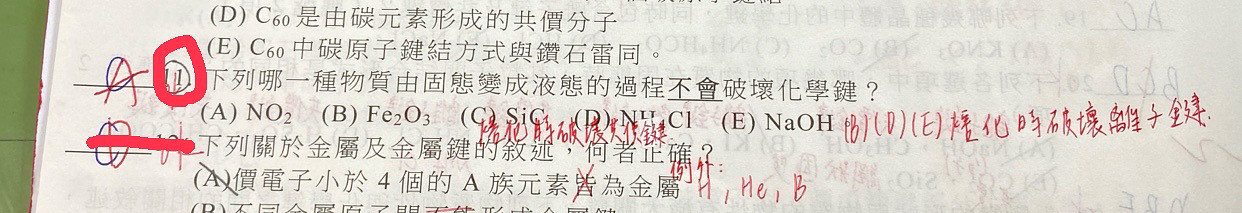 (D) C60 是由碳元素形成的共價分子
(E) C60 中碳原子鍵結方式與鑽石雷同。
A 11 下列哪一種物質由固態變成液態的過程不會破壞化學鍵？
(A) NO2 (B) Fe2O3 (C) SiC (D) NH4Cl (E) NaOH (B)(D)(E)熔化時破壞離子鍵.
熔化時破壞共價鍵
下列關於金屬及金屬鍵的敘述，何者正確？
例外:
(A)價電子小於 4 個的 A 族元素皆為金屬 H, He, B
(B)不同金屬原子間不能形成金屬鍵